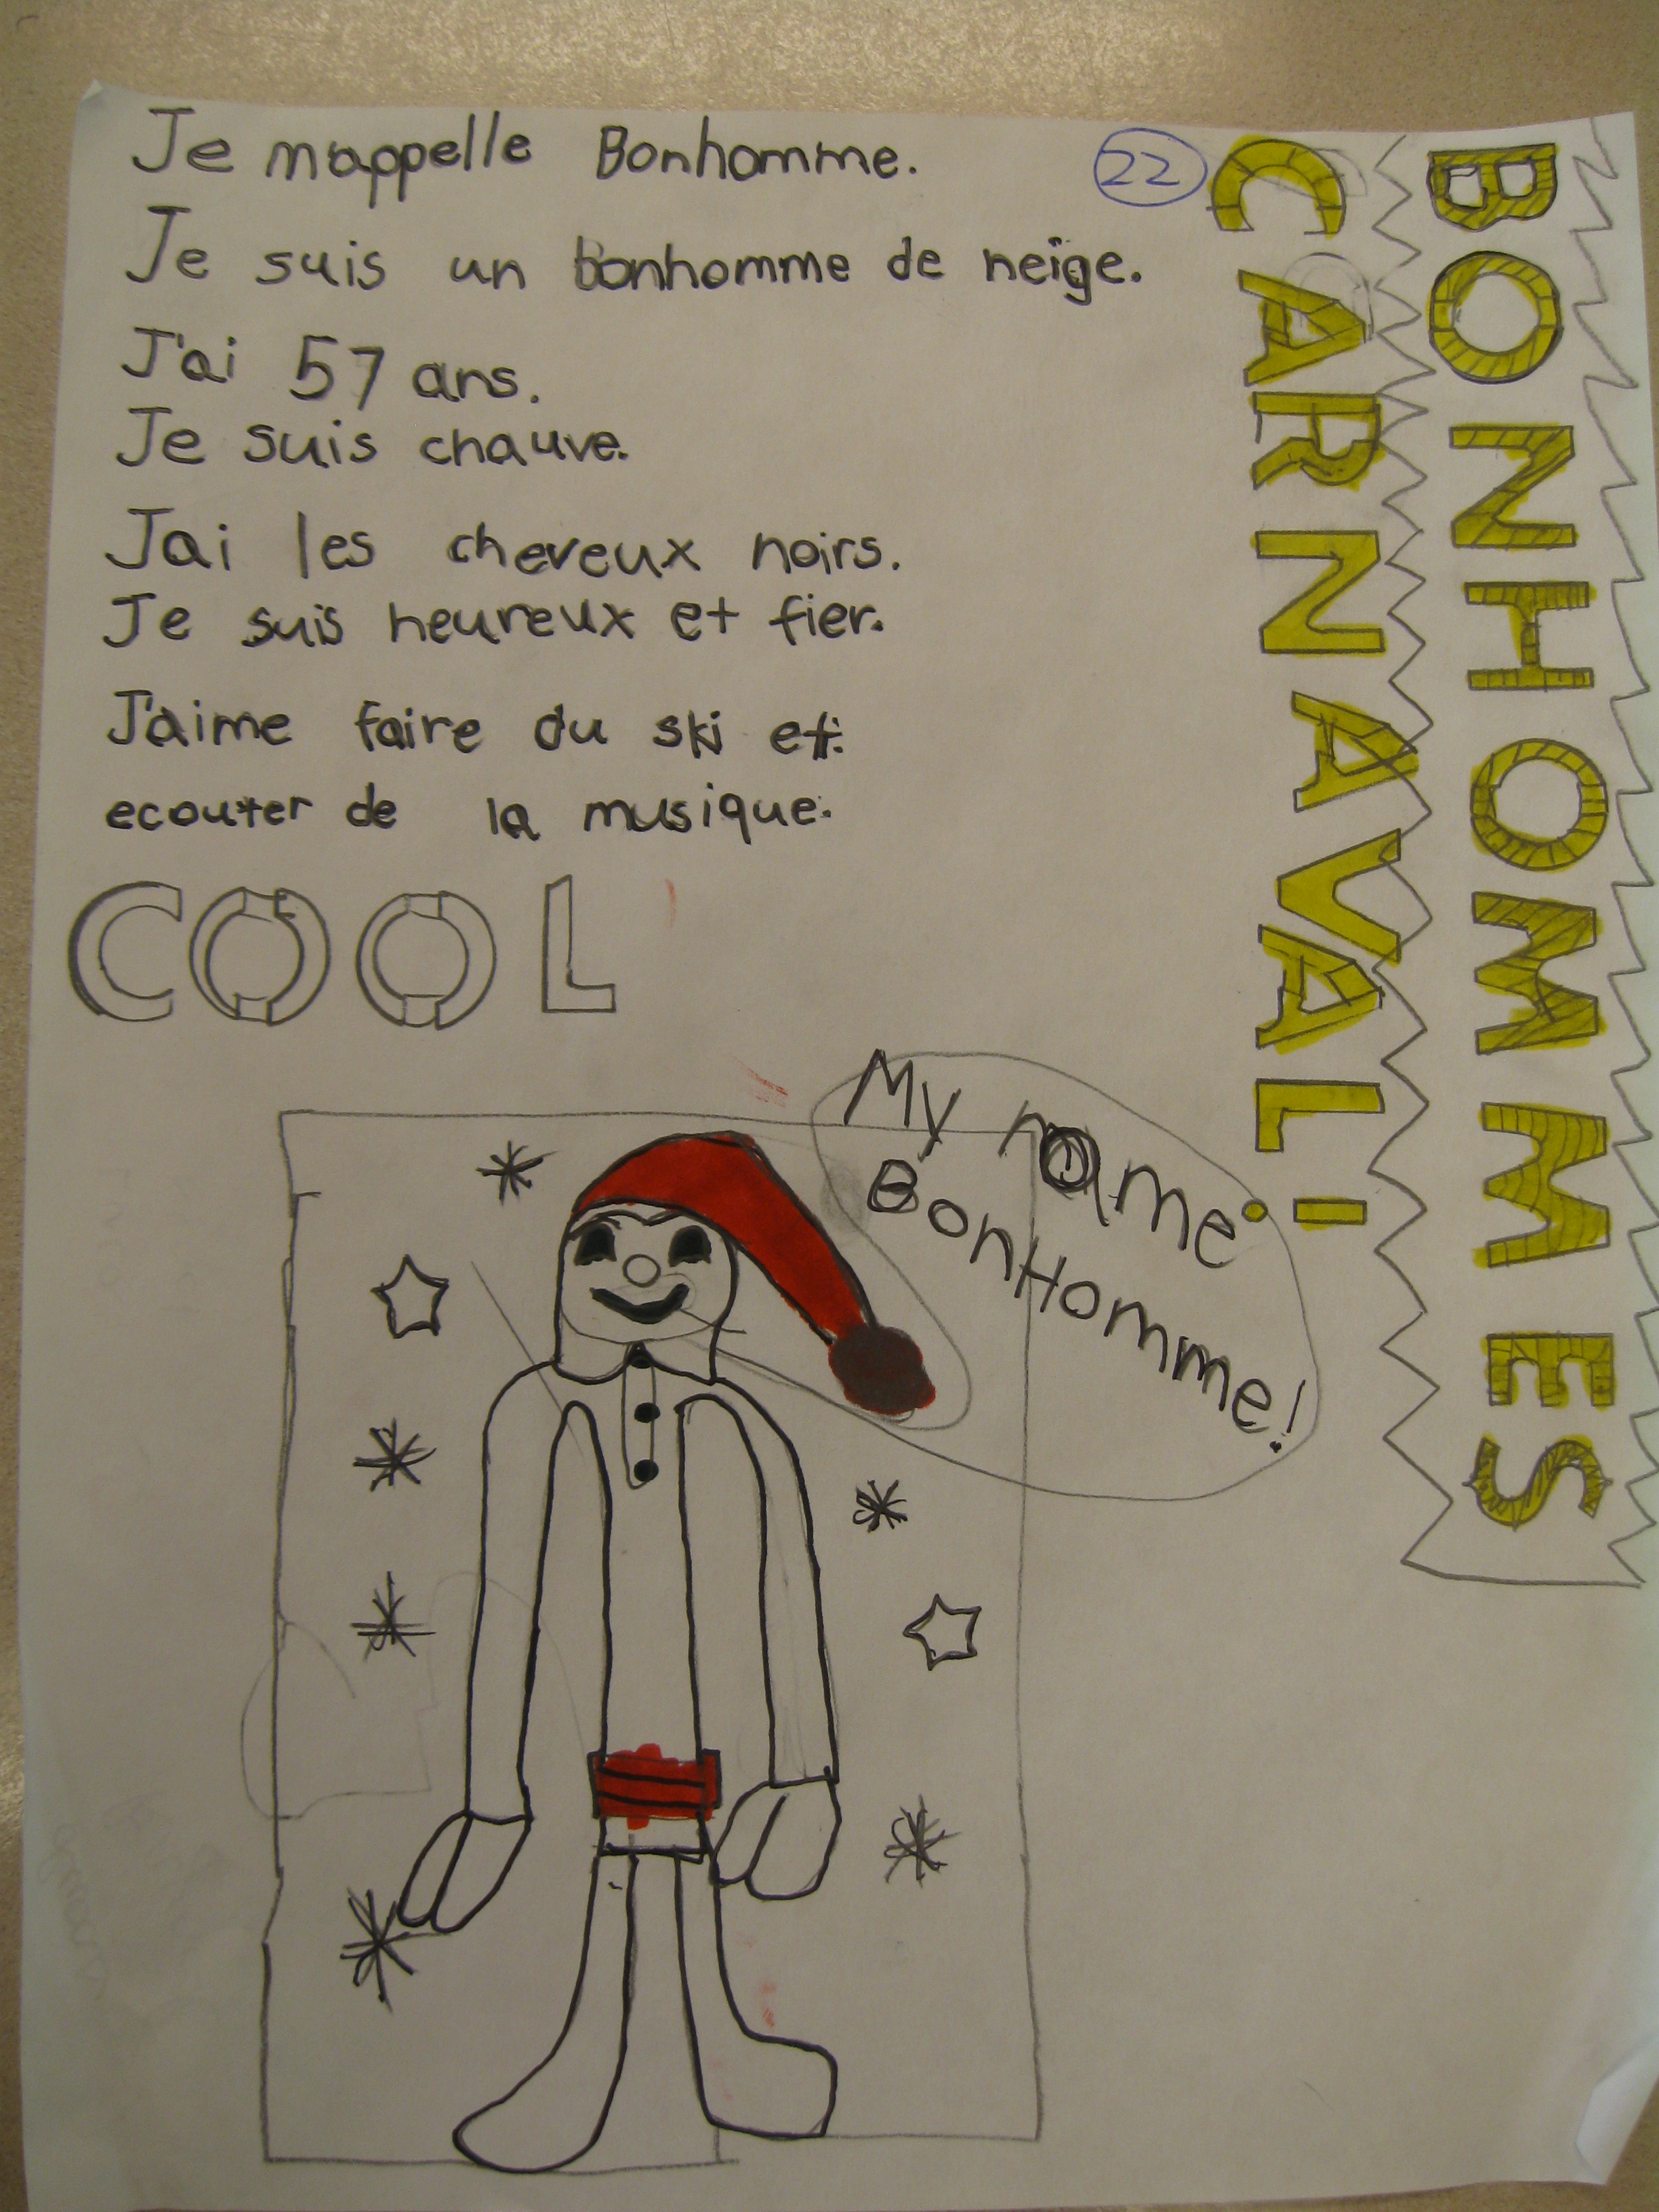 Je m'appelle Bonhomme.
22
Je suis un bonhomme de neige.
J'ai 57 ans.
Je suis chauve.
Jai les cheveux noirs.
Je suis heureux et fier.
J'aime faire du ski et
ecouter de la musique.
COOL
BONHOMMES
CARNAVAL!
My name
BonHomme!